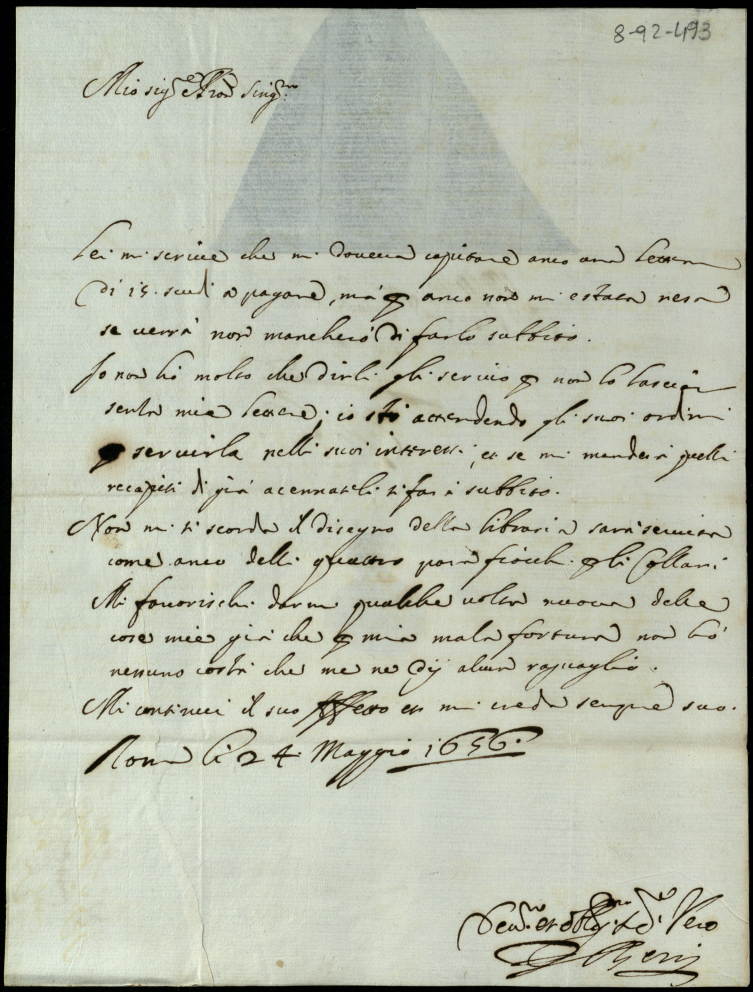 8-92-493
Mio sig.re e Pron Sing.mo
Lei mi scrive che mi doveva capitare anco una lettera
di 15. scudi a pagare, mà p anco non mi è stata resa
se verrà non mancherò di farlo subbito.
Io non hò molto che dirli gli scrivo p non lo lasciar
senza mie lettere; io stò attendendo gli suoi ordini
p servirla nelli suoi interessi, et se mi manderà quelli
recapiti di già acennatoli si farà subbito.
Non mi si scorda il disegno della libraria sarà servita
come anco delli quattro para fiochi p li Collari
Mi favorischi darmi qualche volta nuova delle
cose mie già che p mia mala fortuna non hò
nessuno costà che me ne dij alcun raguaglio.
Mi continui il suo affetto et mi creda sempre suo.
Roma li 24 Maggio 1656.
Dev.mo et obblig.mo Se.re Vero